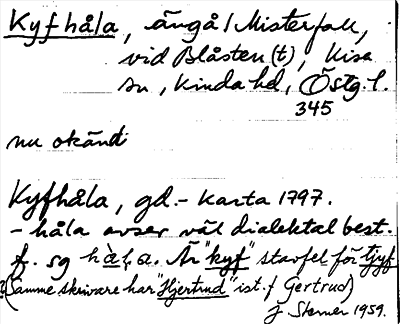 Kyfhåla, ängå / Misterfall,
vid Blåsten (t), Kisa
sn, Kinda hd, Östg. l.
345
nu okänd
Kyfhåla, gd. - Karta 1797.
- håla avser väl dialektal best.
f. sg hàla. Är "kyf" stavfel för tjyf
(Samme skrivare har "Hjertrud" ist. f Gertrud)
J Sterner 1959.